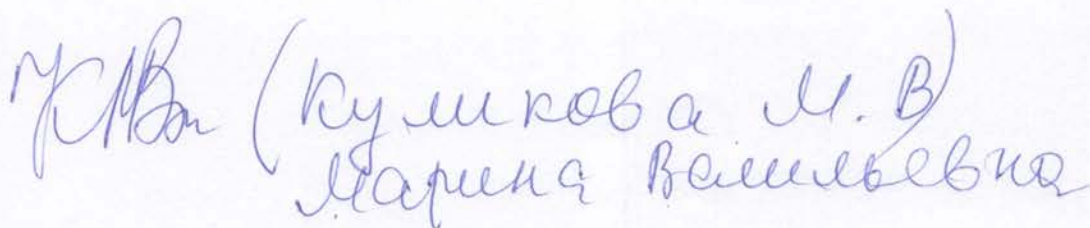 (Куликова М.В)
Марина Васильевна